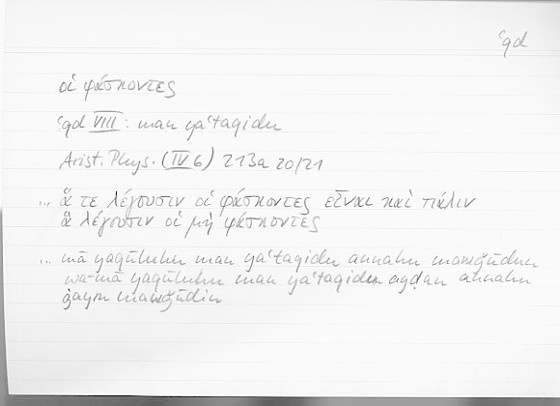 ʿqd
οἱ φάσκοντες
ʿqd VIII: man yaʿtaqidu
Arist. Phys. (IV 6) 213a 20/21
... ἅ τε λέγουσιν οἱ φάσκοντες εἶναι καὶ πάλιν
ἃ λέγουσιν οἱ μὴ φάσκοντες
... mā yaqūluhu man yaʿtaqidu annahu mawǧūdun
wa-mā yaqūluhu man yaʿtaqidu ayḍan annahu
ġayru mawǧūdin